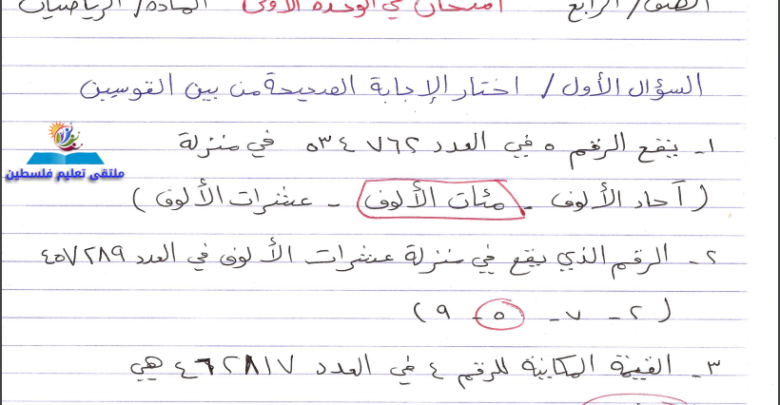 الصف/ الرابع امتحان في الوحدة الأولى المادة/ الرياضيات
السؤال الأول / اختار الإجابة الصحيحة من بين القوسين
١- يقع الرقم ٥ في العدد ٥٣٤٧٦٢ في منزلة
ملتقى تعليم فلسطين
( آحاد الألوف - مئات الألوف - عشرات الألوف )
٢- الرقم الذي يقع في منزلة عشرات الألوف في العدد ٤٥٧٢٨٩
( ٢ - ٧ - ٥ - ٩ )
٣- القيمة المكانية للرقم ٤ في العدد ٤٦٢٨١٧ هي